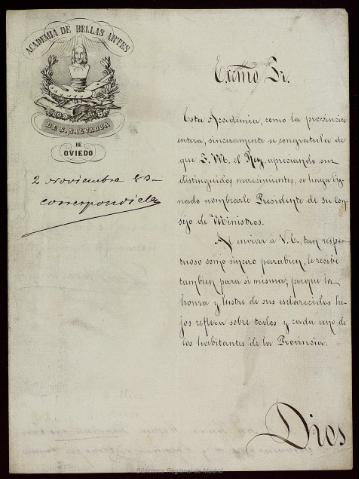 ACADEMIA DE BELLAS ARTES
DE S. SALVADOR
DE
OVIEDO
2 Noviembre 83-
Excmo Sr.
Esta Academia, como la provincia
entera, sinceramente se congratula de
que S. M. el Rey, apreciando sus
distinguidos merecimientos, se haya dig
nado nombrarle Presidente de su Con
sejo de Ministros.
Al enviar a V. E. tan respe
tuoso como sincero parabien, le recibe
tambien para si misma; porque la
honra y lustre de sus esclarecidos hi
jos refleja sobre todos y cada uno de
los habitantes de la Provincia.
Dios